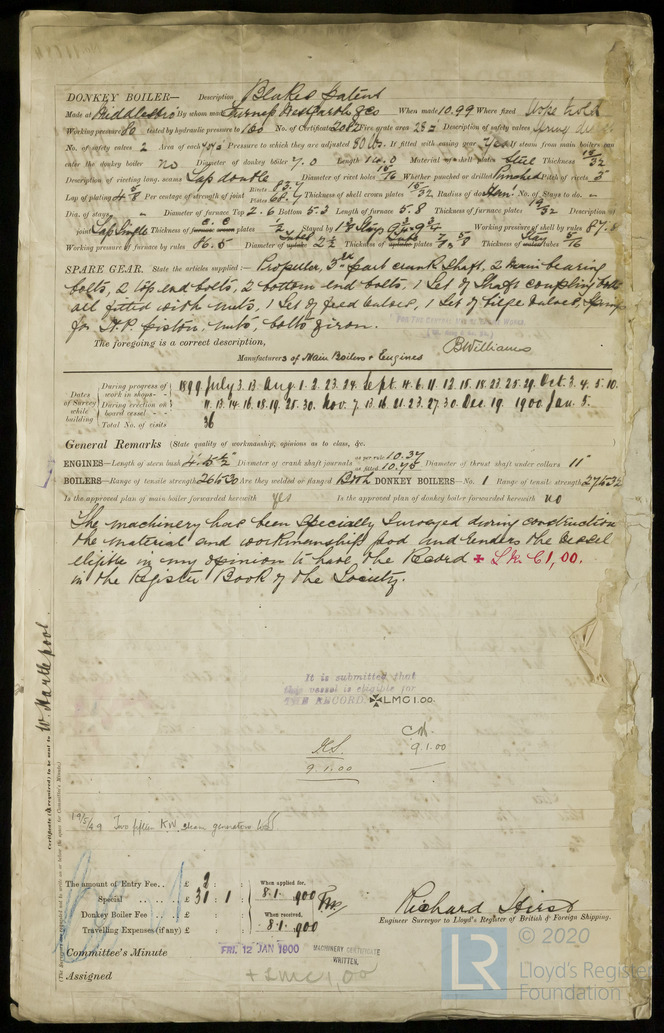 DONKEY BOILER— Description Blakes Patent
Made at Middlesbro By whom made Westgarth & Co When made 10.99 Where fixed
Working pressure 80 tested by hydraulic pressure to 160 No. of Certificate 2082 Fire grate area 28 Description of safety valves
No. of safety valves 2 Area of each Pressure to which they are adjusted 80 lbs. If fitted with easing gear yes If steam from main boilers can
enter the donkey boiler no Diameter of donkey boiler 7.0 Length Material of shell plates Steel Thickness 19/32
Description of riveting long. seams Lap double Diameter of rivet holes 15/16 Whether punched or drilled Pitch of rivets 3
Lap of plating 4 5/8 Per centage of strength of joint Rivets 83.7 Plates 68.7 Thickness of shell crown plates 19/32 Radius of do. No. of Stays to do. –
Dia. of stays. – Diameter of furnace Top 2.6 Bottom 5.3 Length of furnace 5.8 Thickness of furnace plates 19/32 Description of
joint Lap Single Thickness of plates 1/2 Stayed by Working pressure of shell by rules 87.8
Working pressure of furnace by rules 86.5 Diameter of 2 1/2 Thickness of plates Thickness of Stay tubes 5/16
SPARE GEAR. State the articles supplied:— Propeller, 3rd part crank shaft, 2 main bearing
bolts, 2 top end bolts, 2 bottom end bolts, 1 Set of Shaft coupling bolts
all fitted with nuts, 1 Set of feed valves, 1 Set of bilge valves,
for H.P. piston, nuts, bolts & iron.
The foregoing is a correct description,
BWilliams
Manufacturers of Main Boilers & Engines
Dates of Survey while building
During progress of work in shops - - 1899 July 3. 13. Aug. 1. 2. 23. 24. Sept. 4. 6. 11. 12. 15. 18. 23. 25. 29. Oct. 3. 4. 5. 10.
During erection on board vessel - - - 11. 13. 14. 16. 18. 19. 25. 30. Nov. 7. 13. 16. 21. 23. 27. 30. Dec. 19. 1900 Jan. 5.
Total No. of visits 36
General Remarks (State quality of workmanship, opinions as to class, &c.
ENGINES—Length of stern bush Diameter of crank shaft journals as per rule 10.37 as fitted 10.75 Diameter of thrust shaft under collars 11"
BOILERS—Range of tensile strength 26 to 30 Are they welded or flanged Both DONKEY BOILERS—No. 1 Range of tensile strength 27 to 32
Is the approved plan of main boiler forwarded herewith yes Is the approved plan of donkey boiler forwarded herewith no
The machinery has been specially surveyed during construction
the material and workmanship good and renders the vessel
eligible in my opinion to have the Record
in the Register Book of the Society.
Certificate (if required) to be sent to W. Hartlepool
It is submitted that
this vessel is eligible for
THE RECORD. LMC 1.00
9.1.00
9.1.00
19/5/49 Two fifteen K.W. steam generators
The amount of Entry Fee. . £ 2 : :
Special . . . . £ 31 : 1 :
Donkey Boiler Fee . . £ : :
Travelling Expenses (if any) £ : :
When applied for, 8.1. 1900
When received, 8.1. 1900
Richard Hirst
Engineer Surveyor to Lloyd's Register of British & Foreign Shipping.
Committee's Minute FRI. 12 JAN 1900
MACHINERY CERTIFICATE
WRITTEN.
Assigned + LMC 1,00
LR
© 2020
Lloyd's Register
Foundation